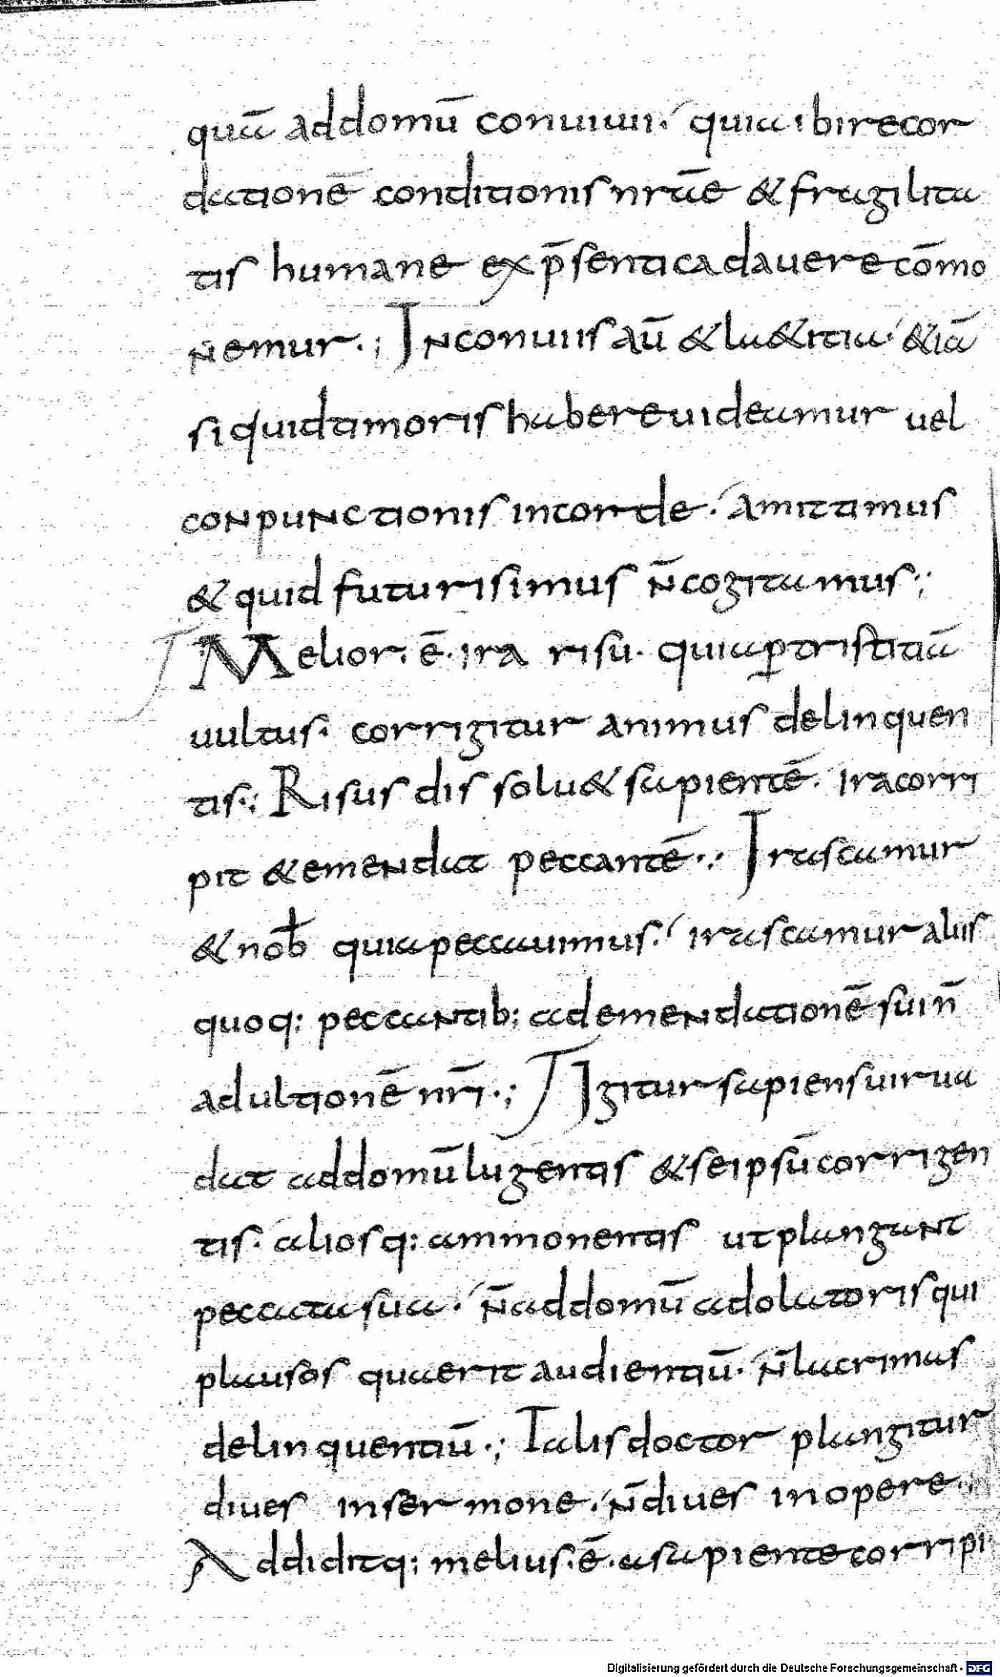 quā ad domū conuiuii. quia ibi recor
dationē conditionis nr̄ae & fragilita
tis humane ex p̄senti cadauere cōmo
nemur.; In conuiuiis aū & la&itia. & iā
si quid timoris habere uideamur uel
conpunctionis in corde. amittimus
& quid futuri simus n̄ cogitamus.;
Melior. ē. ira risu. quia ꝑ tristitiā
uultus. corrigitur animus delinquen
tis.; Risus dissolu& sapientē. ira corri
pit & emendat peccantē.; Irascamur
& nob̄ quia peccauimus. irascamur aliis
quoq: peccantib: ad emendationē sui n̄
ad ultionē nr̄i.; Igitur sapiens uir ua
dat ad domū lugentis & se ipsū corrigen
tis. aliosq: ammonentis ut plangant
peccata sua. n̄ ad domū adolatoris qui
plausos quaerit audientiū. n̄ lacrimas
delinquentiū.; Talis doctor plangitur
diues in sermone. n̄ diues in opere.
Addiditq: melius. ē. a sapiente corripi
Digitalisierung gefördert durch die Deutsche Forschungsgemeinschaft - DFG